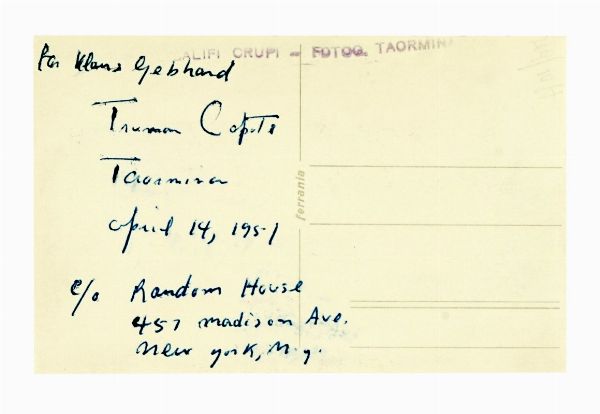 for Klaus Gebhard
ALIFI CRUPI - FOTOG. TAORMINA
Truman Capote
Taormina
April 14, 1951
ferrania
c/o Random House
457 Madison Ave.
New York, N.Y.